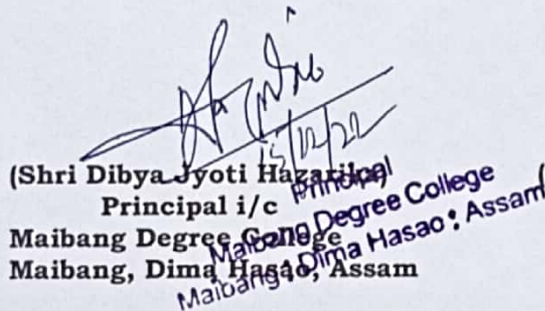 15/12/22
(Shri Dibya Jyoti Hazarika)
Principal i/c
Maibang Degree College
Maibang, Dima Hasao, Assam
Principal
Maibang Degree College
Maibang : Dima Hasao : Assam
(